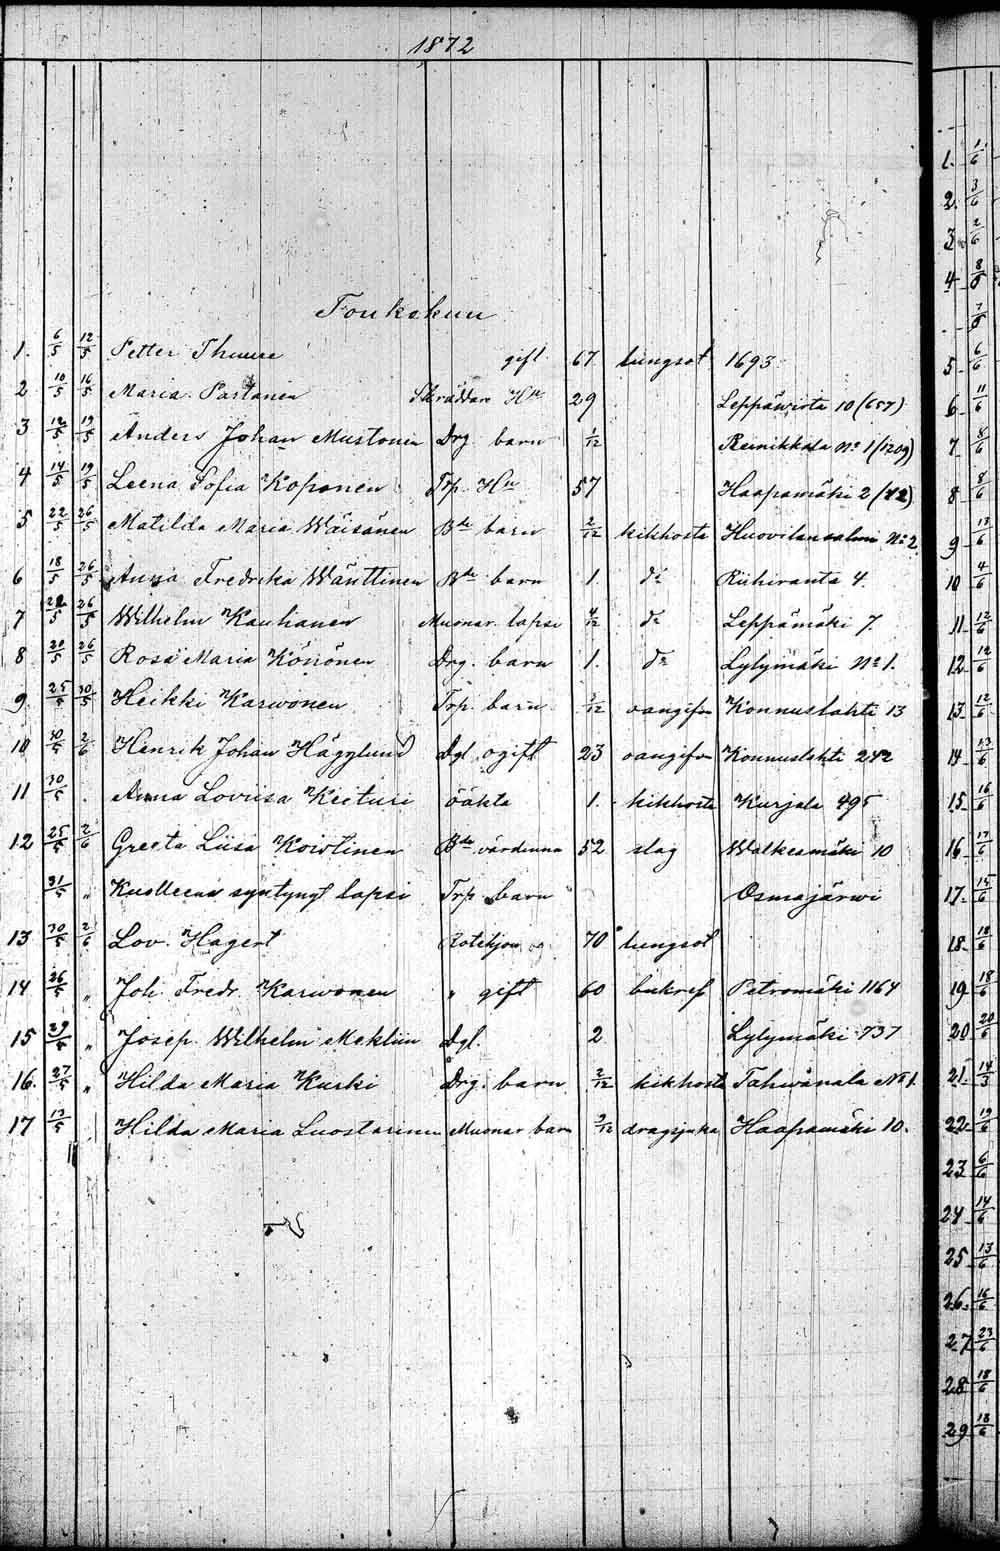 1872
Toukokuu
1. 6/5 12/5 Petter Thuure gift 67 lungsot 1693
2 10/5 16/5 Maria Partanen Skräddare Hu 29 Leppäwirta 10 (657)
3 12/5 19/5 Anders Johan Mustonen Drg. barn 1/12 Reinikkala No 1 (1209)
4 14/5 19/5 Leena Sofia Koponen Trp. Hu 57 Haapamäki 2 (42)
5 22/5 26/5 Matilda Maria Wäisänen Bde barn 2/12 kikhosta Huovilansalmi No 2
6 18/5 26/5 Anna Fredrika Wänttinen Bde barn 1. do Riihiranta 4.
7 22/5 26/5 Wilhelm Kauhanen Muonar. lapsi 4/12 do Leppämäki 7.
8 20/5 26/5 Rosa Maria Könönen Drg. barn 1. do Lylymäki No 1.
9 25/5 30/5 Heikki Karwonen Trp. barn 3/12 oangifven Konnuslahti 13
10 30/5 2/6 Henrik Johan Hägglund Dgl. ogift 23 oangifven Konnuslahti 242
11 30/5 Anna Loviisa Keituri oäkta 1. kikhosta Kurjala 495
12 25/5 2/6 Greeta Liisa Koistinen Bde värdinna 52 slag Walkeamäki 10
31/5 " Kuolleena syntynyt lapsi Trp. barn Osmajärwi
13 30/5 2/6 Lov. Hagert Rotehjon 70 lungsot
14 26/5 " Joh. Fredr. Karwonen " gift 60 bukref Petromäki 1164
15 29/5 " Josep. Wilhelm Meklin Dgl. 2 Lylymäki 737
16. 27/5 " Hilda Maria Kuski Drg. barn 2/12 kikhosta Tahwanala No 1.
17 13/5 Hilda Maria Luostarinen Muonar barn 2/12 dragsjuka Haapamäki 10.
1. 1/6
2. 3/6
3 2/6
4 8/6
7/6
5 6/6
6 11/6
7 8/6
8 8/6
9 13/6
10 4/6
11 12/6
12 12/6
13 12/6
14 13/6
15 16/6
16 17/6
17 15/6
18 18/6
19 18/6
20 20/6
21 14/3
22 19/6
23 6/6
24 14/6
25 13/6
26 16/6
27 23/6
28 18/6
29 18/6